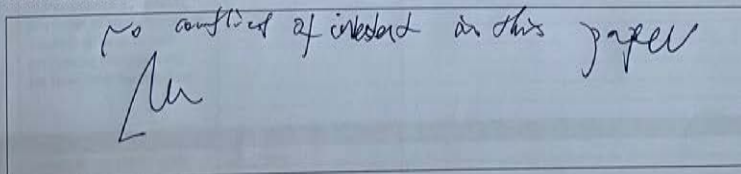 No conflict of interest in this paper